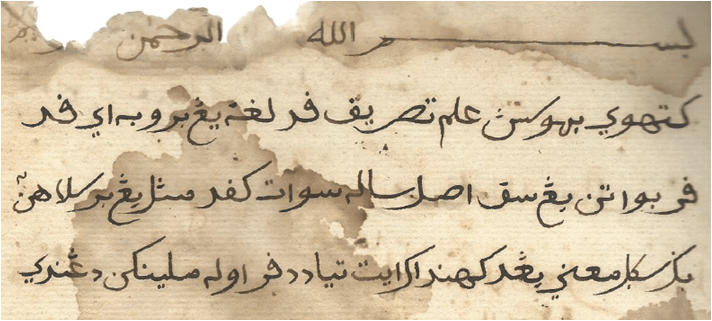 بســـم الله الرحمن
كتهوي بهوسن علم تصريف فد لغة يڠ بروبه اي فد
فربواتن يڠ سق اصل ساله سوات كفد مثل يڠ برسلاهن
سكل معني يڠد كهنداكي ايت تياد دفراوله ملينكن دڠندي